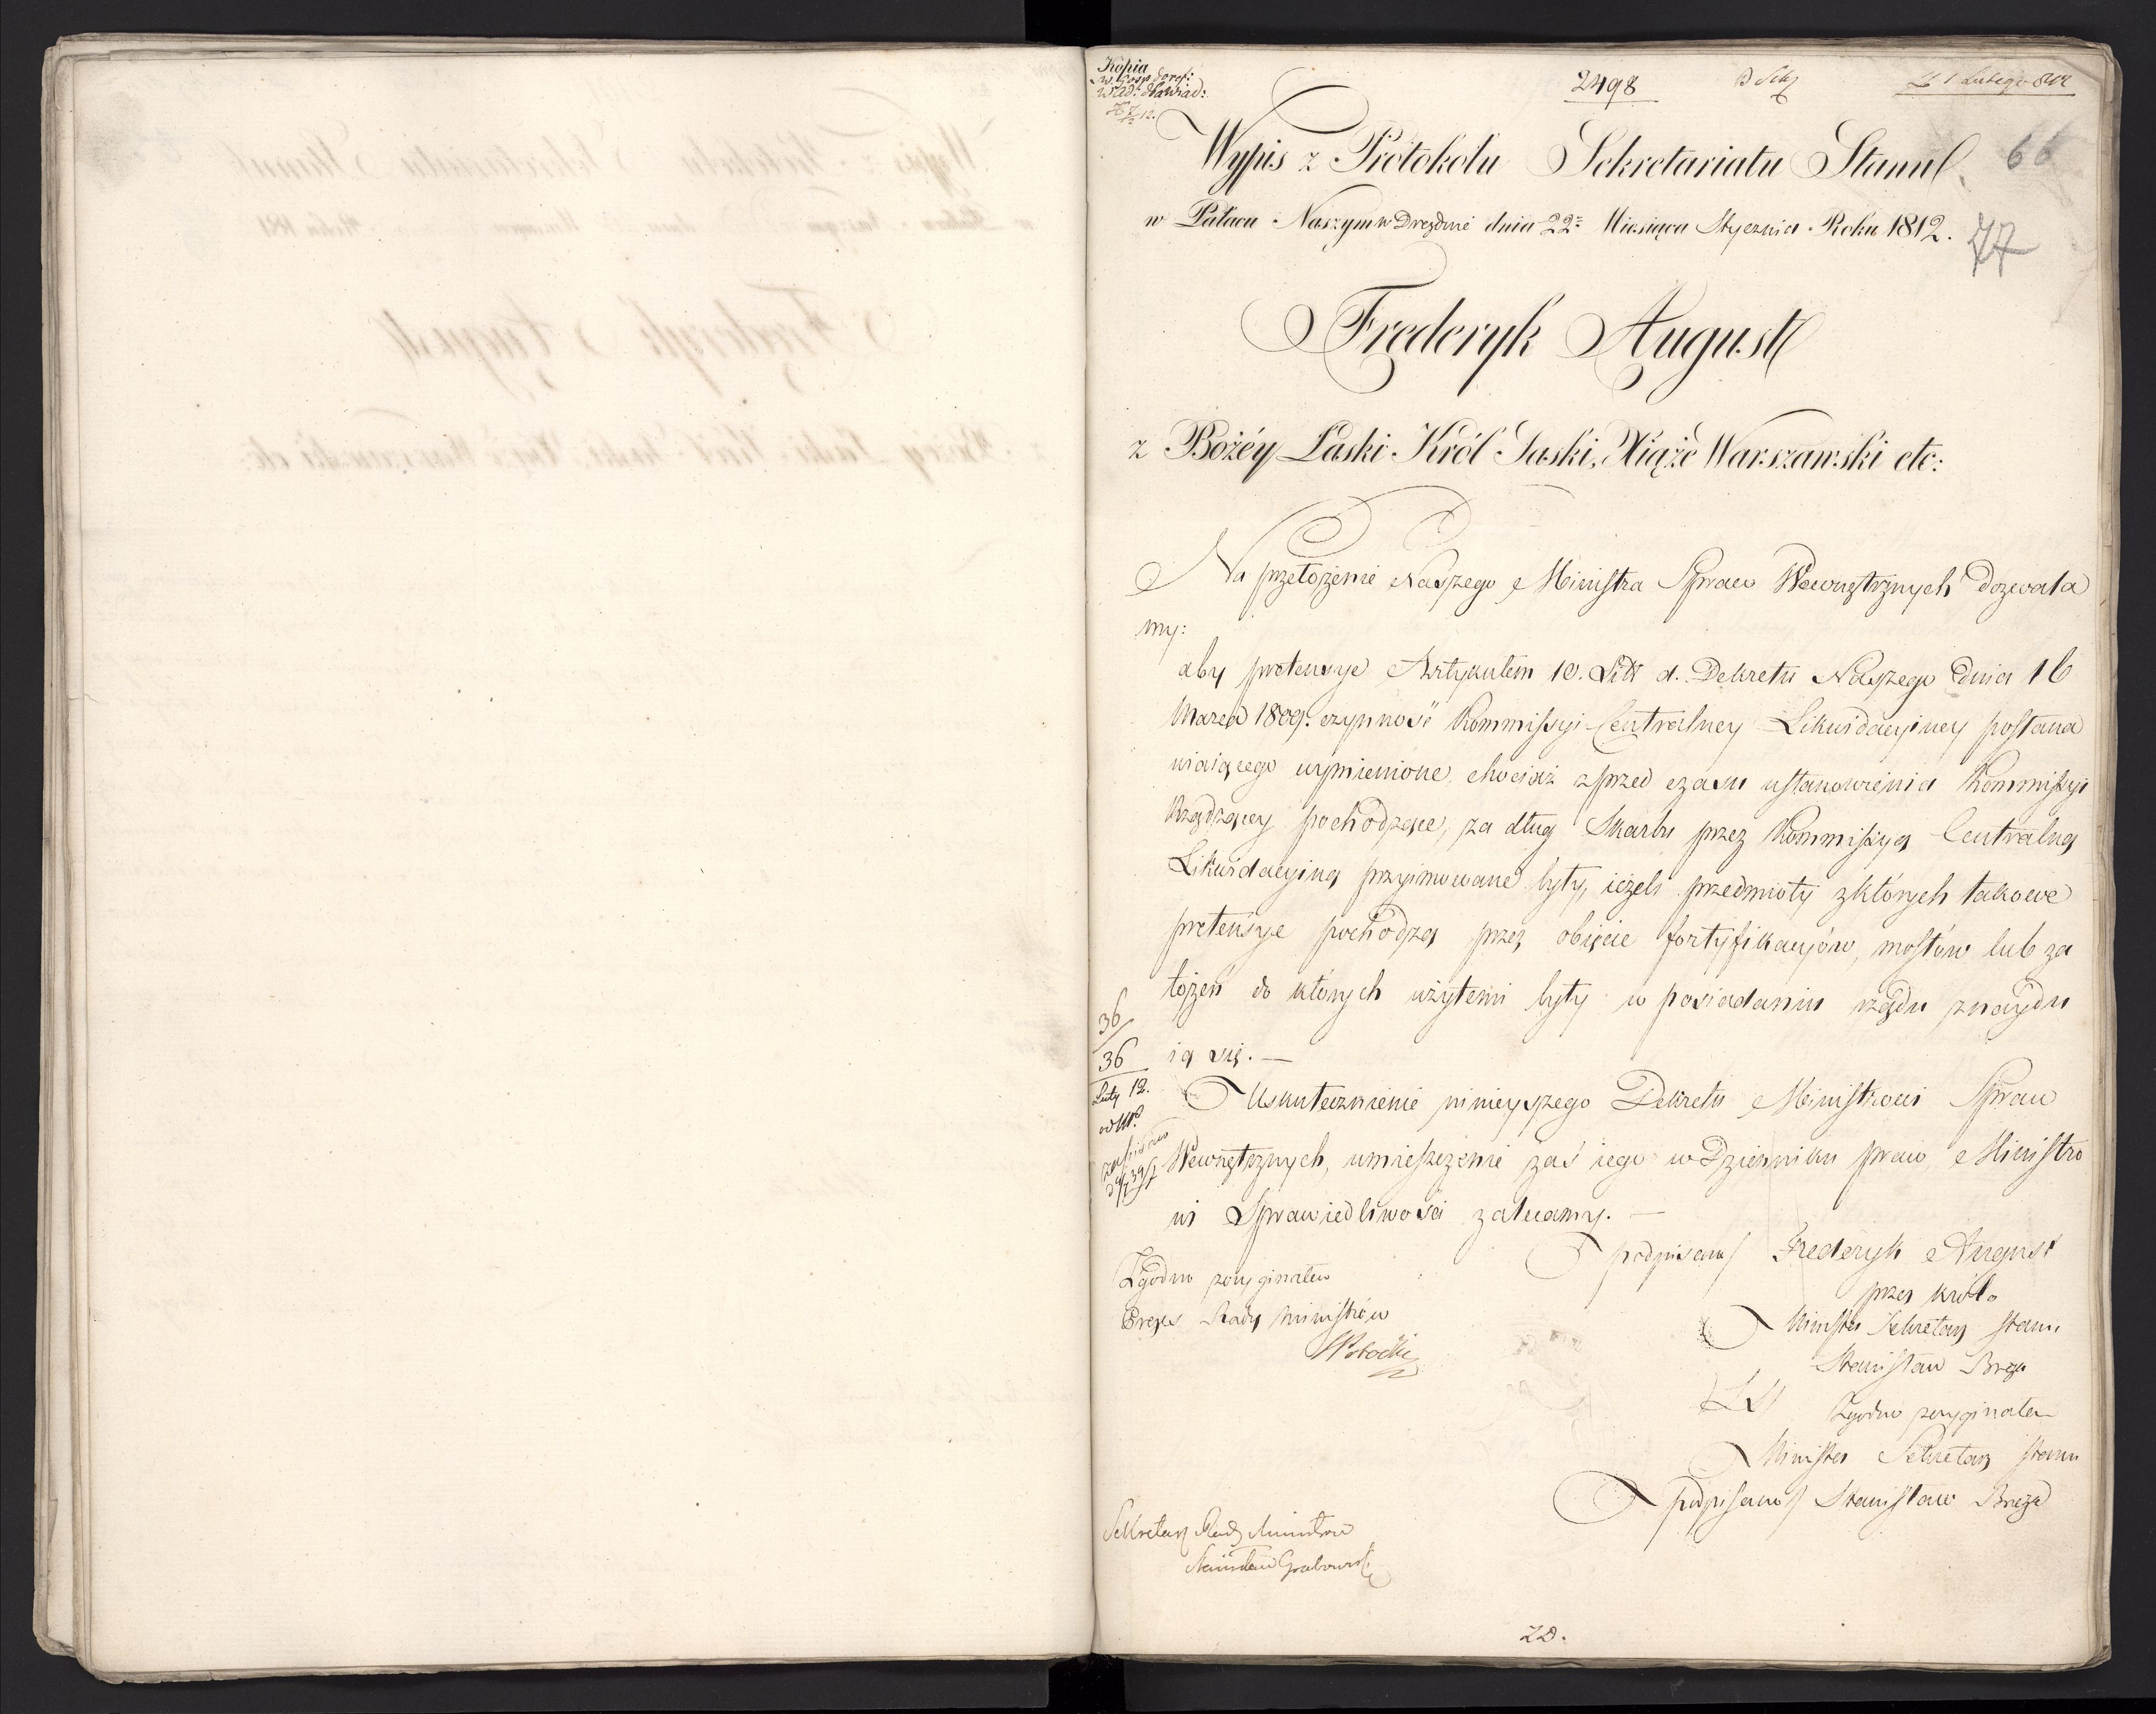 Kopia
2498
d. 1 Lutego 812
Wypis z Protokołu Sekretariatu Stanu.
66
w Pałacu Naszym w Dreznie dnia 22. Miesiąca Stycznia Roku 1812.
77
Frederyk August
z Bożéy Łaski Król Saski, Xiąże Warszawski etc:
Na przełożenie Naszego Ministra Spraw Wewnętrznych dozwala
my:
aby pretensye Artykułem 10. Litt d. Dekretu Naszego dnia 16
Marca 1809. czynność Kommissyi Centralney Likwidacyiney postana
wiaiącego wymienione, chociaż zprzed czasu ustanowienia Kommissyi
Rządzącey pochodzące, za dług Skarbu przez Kommissyą Centralną
Likwidacyiną przyimowane były, ieżeli przedmioty z których takowe
pretensye pochodzą przez obięcie fortyfikacyiów, mostów lub za
łożeń do których użytemi były w posiadaniu rządu znaydu
ią się. —
36
36
Luty 12.
Uskutecznienie ninieyszego Dekretu Ministrowi Spraw
Wewnętrznych, umieszczenie zaś iego w Dzienniku praw Ministro
wi Sprawiedliwości zalecamy. —
podpisano/ Frederyk August
przez króla
Minister Sekretarz stanu
Stanisław Breza
Zgodno z oryginałem
Prezes Rady Ministrów
Potocki
LS
Zgodno z oryginałem
Minister Sekretarz stanu
podpisano/ Stanisław Breza
Sekretarz Rady Ministrów
Stanisław Grabowski